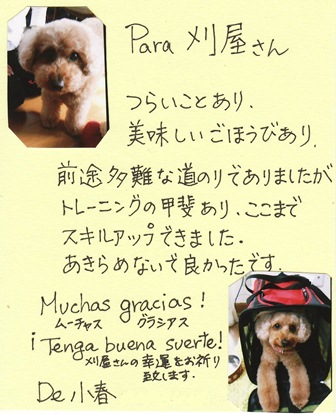 Para 刈屋さん
つらいことあり、
美味しいごほうびあり。
前途多難な道のりでありましたが
トレーニングの甲斐あり、ここまで
スキルアップできました。
あきらめないで良かったです。
Muchas gracias!
ムーチャス グラシアス
¡Tenga buena suerte!
刈屋さんの幸運をお祈り
致します。
De 小春